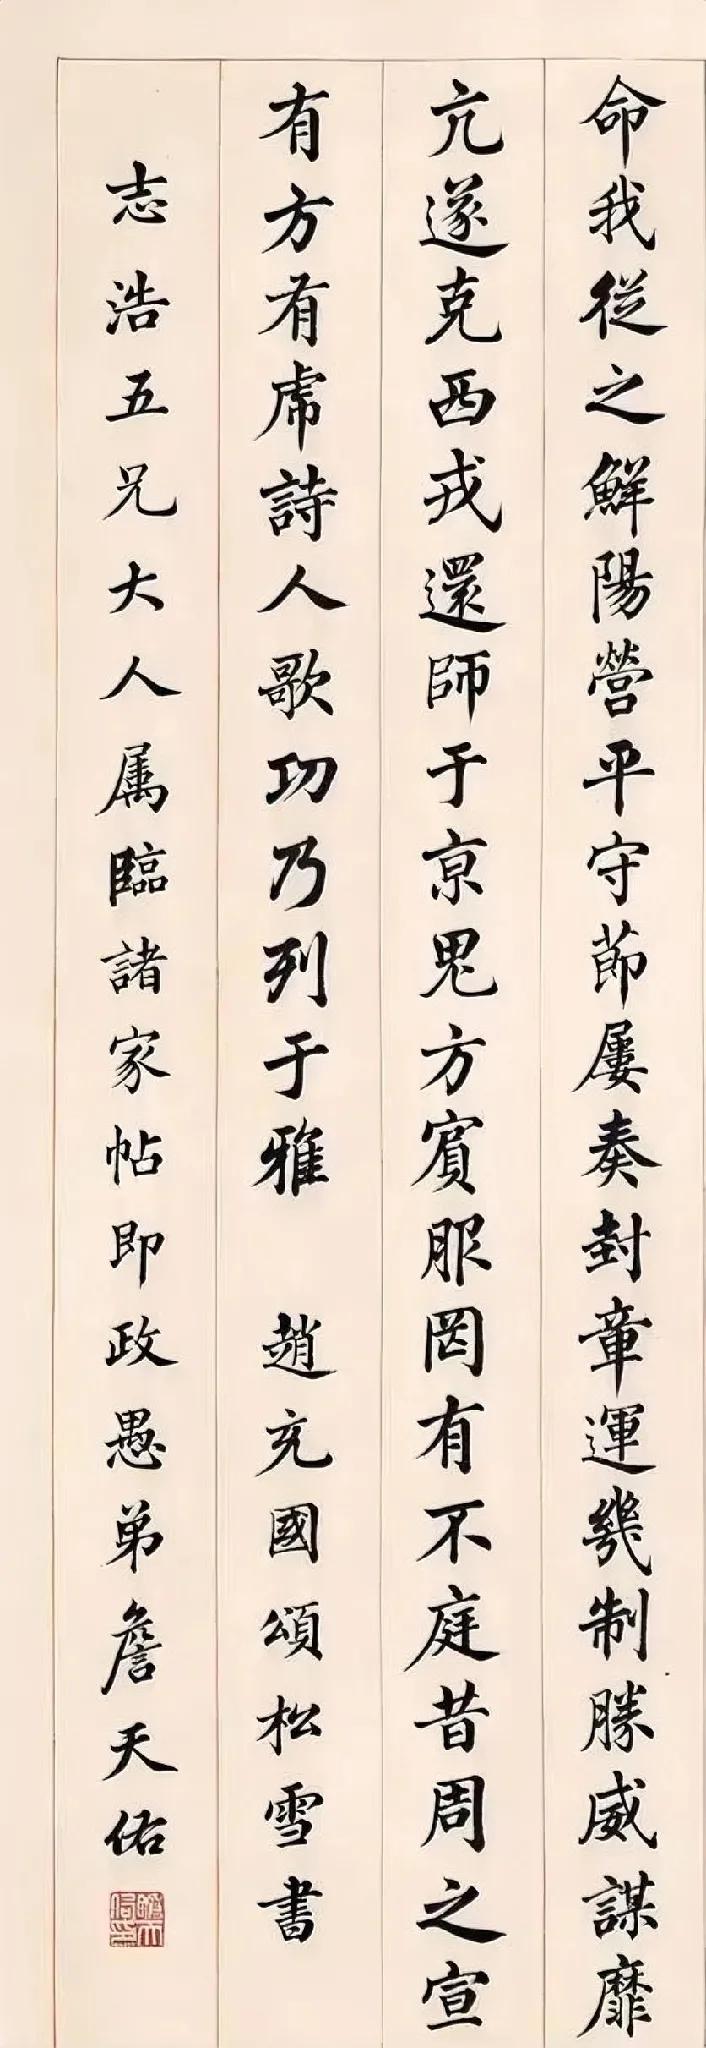 命我從之鮮陽營平守節屢奏封章運幾制勝威謀靡
亢遂克西戎還師于京鬼方賓服罔有不庭昔周之宣
有方有虎詩人歌功乃列于雅 趙充國頌松雪書
志浩五兄大人属臨諸家帖即政愚弟詹天佑